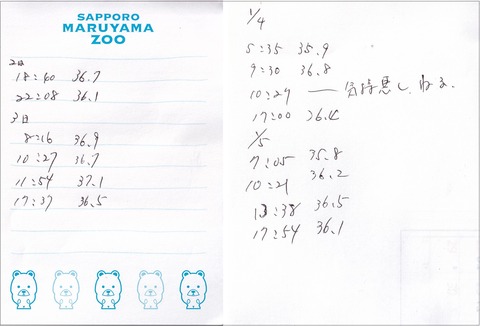 SAPPORO
MARUYAMA
ZOO
2日
18:40 36.7
22:08 36.1
3日
8:16 36.9
10:27 36.7
11:54 37.1
17:37 36.5
1/4
5:35 35.9
9:30 36.8
10:29 — 気持悪し、ねる。
17:00 36.4
1/5
7:05 35.8
10:21 36.2
13:38 36.5
17:54 36.1